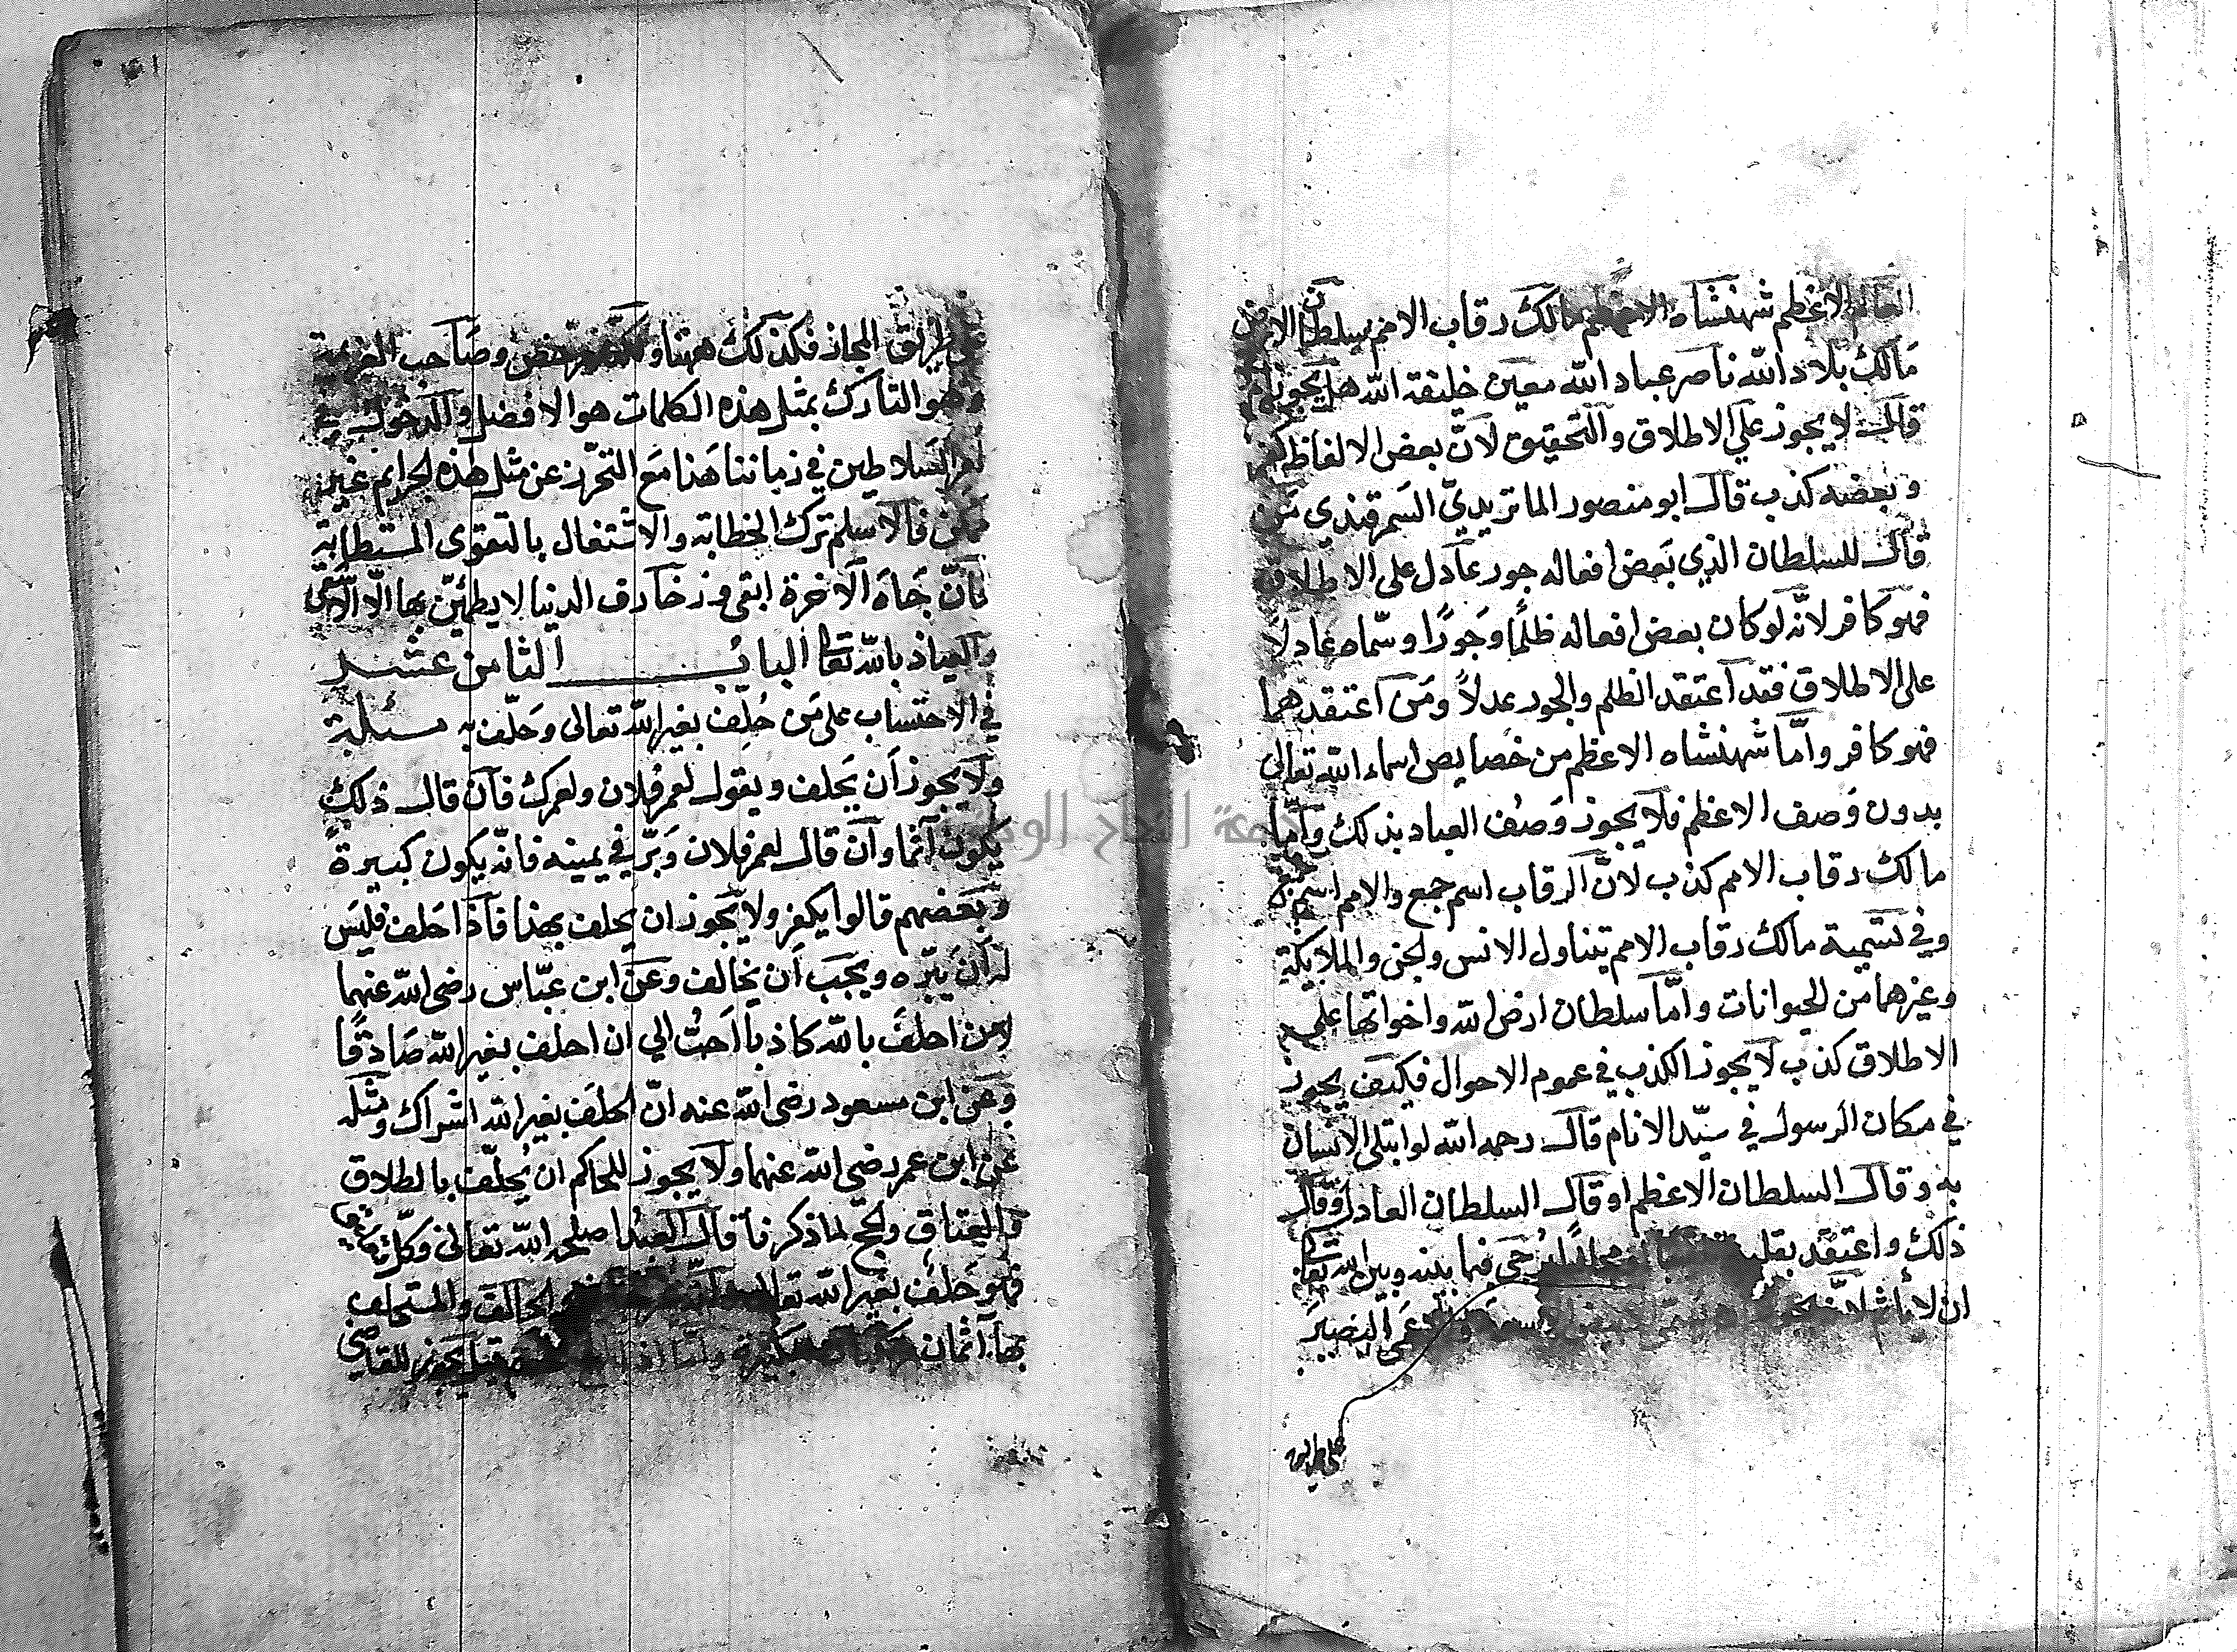 العالم الاعظم شهنشاه الاعظم مالك رقاب الامم سلطان الارض
مالك بلاد الله ناصر عباد الله معين خليفة الله هل يجوز ام
قال لا يجوز علي الاطلاق والتحقيق لانّ بعض الالفاظ كفر
وبعضه كذب قال ابو منصور الماتريديّ السمرقندي من
قال للسلطان الذي بعض افعاله جور عادل على الاطلاق
فهو كافر لانّه لوكان بعض افعاله ظلمًا وجورًا وسمّاه عادلا
على الاطلاق فقد اعتقد الظلم والجور عدلاً ومن اعتقدهما
فهو كافر وامّا شهنشاه الاعظم من خصايص اسماء الله تعالى
بدون وصف الاعظم فلا يجوز وصف العباد بذلك وامّا
مالك رقاب الامم كذب لانّ الرقاب اسم جمع والامم اسم جمع
وفي تسمية مالك رقاب الامم يتناول الانس ولجن والملايكة
وغيرهما من الحيوانات وامّا سلطان ارض الله واخواتها على
الاطلاق كذب لا يجوز الكذب في عموم الاحوال فكيف يجوز
في مكان الرسول في سيّد الانام قال رحمه الله لو ابتلى الانسان
به وقال السلطان الاعظم او قال السلطان العادل وقال
ذلك واعتقد بقلبه مجازًا يُرجى فيما بينه وبين الله تعا
ان لا يأثم لانّ على البصير
على طريق
على طريق المجاز فكذلك ههنا وصاحب العزيمة
وهو التارك بمثل هذه الكلمات هو الافضل والدخول على
السلاطين في زماننا هذا مع التحرّز عن مثل هذه الجرايم غير
ممكن فالاسلم ترك الخطابة والاشتغال بالتقوى المستطابة
لانّ جاه الاخرة ابقى وزخارف الدنيا لا يطمئنّ بها الّا الاشقى
والعياذ بالله تعا الباب الثامن عشر
في الاحتساب على من حُلِف بغير الله تعالى وحلّف به مسئلة
ولا يجوز أن يحلف ويقول لعمر فلان ولعمرك فان قال ذلك
يكون آثما وان قال لعمر فلان وبَرّ في يمينه فانّه يكون كبيرة
وبعضهم قالوا يكفر ولا يجوز ان يحلف بهذا فاذا حلف فليس
له أن يبرّه ويجب أن يخالف وعن ابن عبّاس رضى الله عنهما
لمن احلف بالله كاذبا احبّ الي ان احلف بغير الله صادقًا
وعن ابن مسعود رضى الله عنه انّ لحلف بغير الله اشراك ومثله
عن ابن عمر رضى الله عنهما ولا يجوز للحاكم ان يُحلّف بالطلاق
والعتاق ولحج لما ذكرنا قال العبد اصلحه الله تعالى وكلّ
فهو حلف بغير الله تعا الحالف والمستحلف
بها آثمان يجوز للقاضى